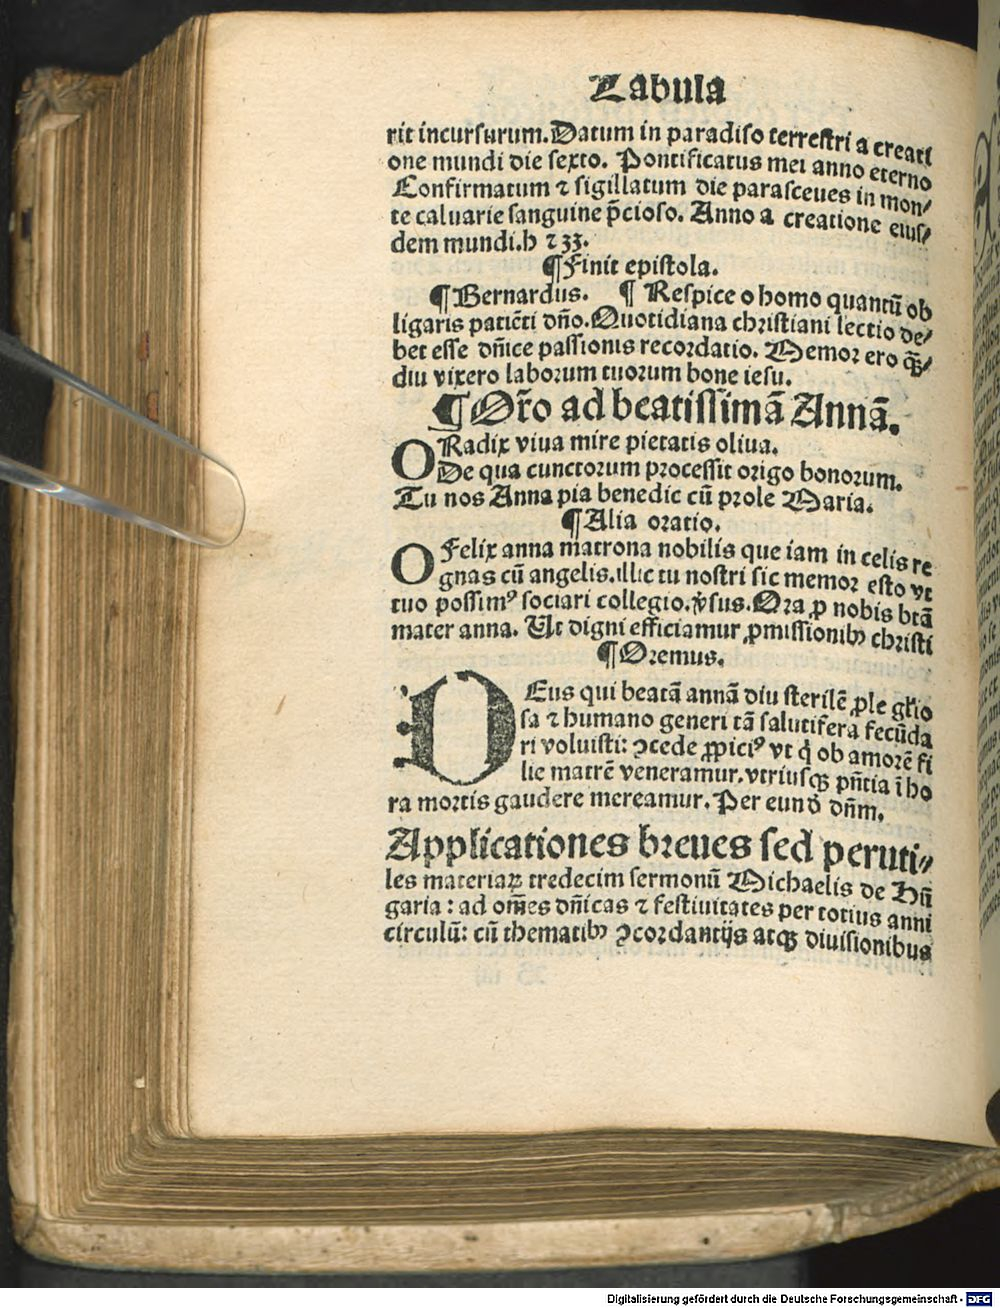 Tabula
rit incursurum. Datum in paradiso terrestri a creati
one mundi die sexto. Pontificatus mei anno eterno
Confirmatum ⁊ sigillatum die parasceues in mon⸗
te caluarie sanguine p̄cioso. Anno a creatione eius⸗
dem mundi. h ⁊ 33.
¶ Finit epistola.
¶ Bernardus. ¶ Respice o homo quantū ob
ligaris patiēti dn̄o. Quotidiana christiani lectio de⸗
bet esse dn̄ice passionis recordatio. Memor ero q̄⸗
diu vixero laborum tuorum bone iesu.
¶ Or̄o ad beatissimā Annā.
O Radix viua mire pietatis oliua.
De qua cunctorum processit origo bonorum.
Tu nos Anna pia benedic cū prole Maria.
¶ Alia oratio.
O Felix anna matrona nobilis que iam in celis re
gnas cū angelis. illic tu nostri sic memor esto vt
tuo possimꝰ sociari collegio. v̓sus. Ora ꝓ nobis btā
mater anna. Ut digni efficiamur ꝓmissionibꝫ christi
¶ Oremus.
DEus qui beatā annā diu sterilē ꝓle gl̓io
sa ⁊ humano generi tā salutifera fecūda
ri voluisti: ꝯcede ꝓpiciꝰ vt q̇ ob amorē fi
lie matrē veneramur. vtriusqꝫ pn̄tia ī ho
ra mortis gaudere mereamur. Per eund̓ dn̄m.
Applicationes breues sed peruti⸗
les materiaꝝ tredecim sermonū Michaelis de Hū
garia: ad om̄es dn̄icas ⁊ festiuitates per totius anni
circulū: cū thematibꝫ ꝯcordantijs atqꝫ diuisionibus
Digitalisierung gefördert durch die Deutsche Forschungsgemeinschaft - DFG